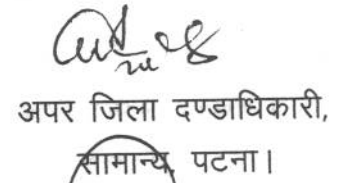 अपर जिला दण्डाधिकारी,
सामान्य, पटना।